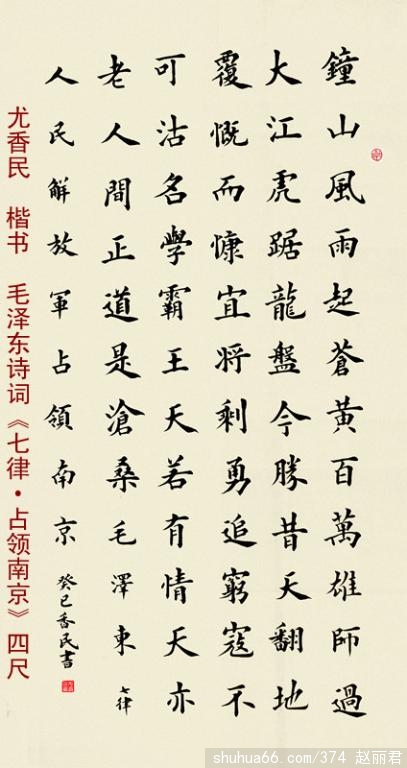 鐘山風雨起蒼黃百萬雄師過
大江虎踞龍盤今勝昔天翻地
覆慨而慷宜將剩勇追窮寇不
可沽名學霸王天若有情天亦
老人間正道是滄桑毛澤東七律
人民解放軍占領南京癸巳香民書
尤香民 楷书 毛泽东诗词《七律·占领南京》四尺
shuhua66.com/374 赵丽君